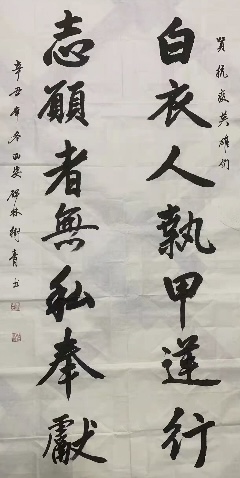 賀抗疫英雄们
白衣人執甲逆行
志願者無私奉獻
辛丑年冬西安碑林